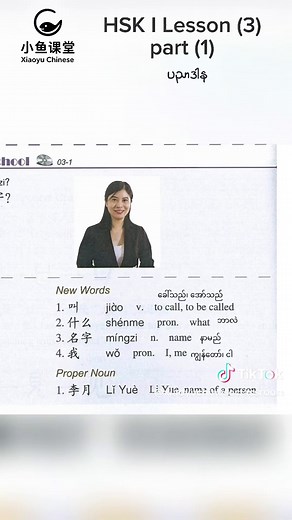 小鱼课堂
Xiaoyu Chinese
HSK I Lesson (3)
part (1)
ပညာဒါန
chool 03-1
zi?
字?
New Words
ခေါ်သည်၊ အော်သည်
1. 叫 jiào v. to call, to be called
2. 什么 shénme pron. what ဘာလဲ
3. 名字 míngzi n. name နာမည်
4. 我 wǒ pron. I, me ကျွန်တော်၊ ငါ
TikTok
Proper Noun
1. 李月 Lǐ Yuè Li Yue, name of a person